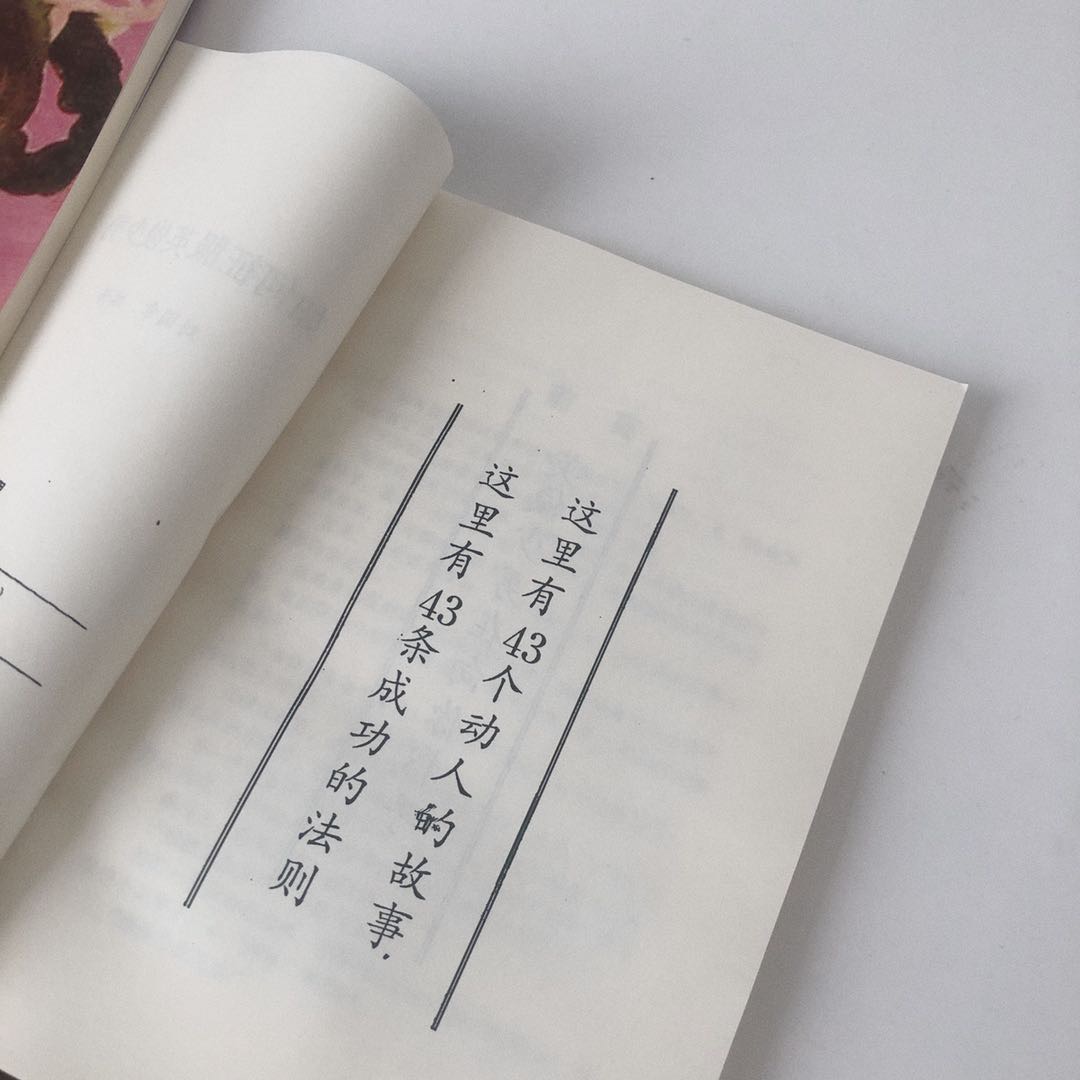 这里有43个动人的故事，
这里有43条成功的法则